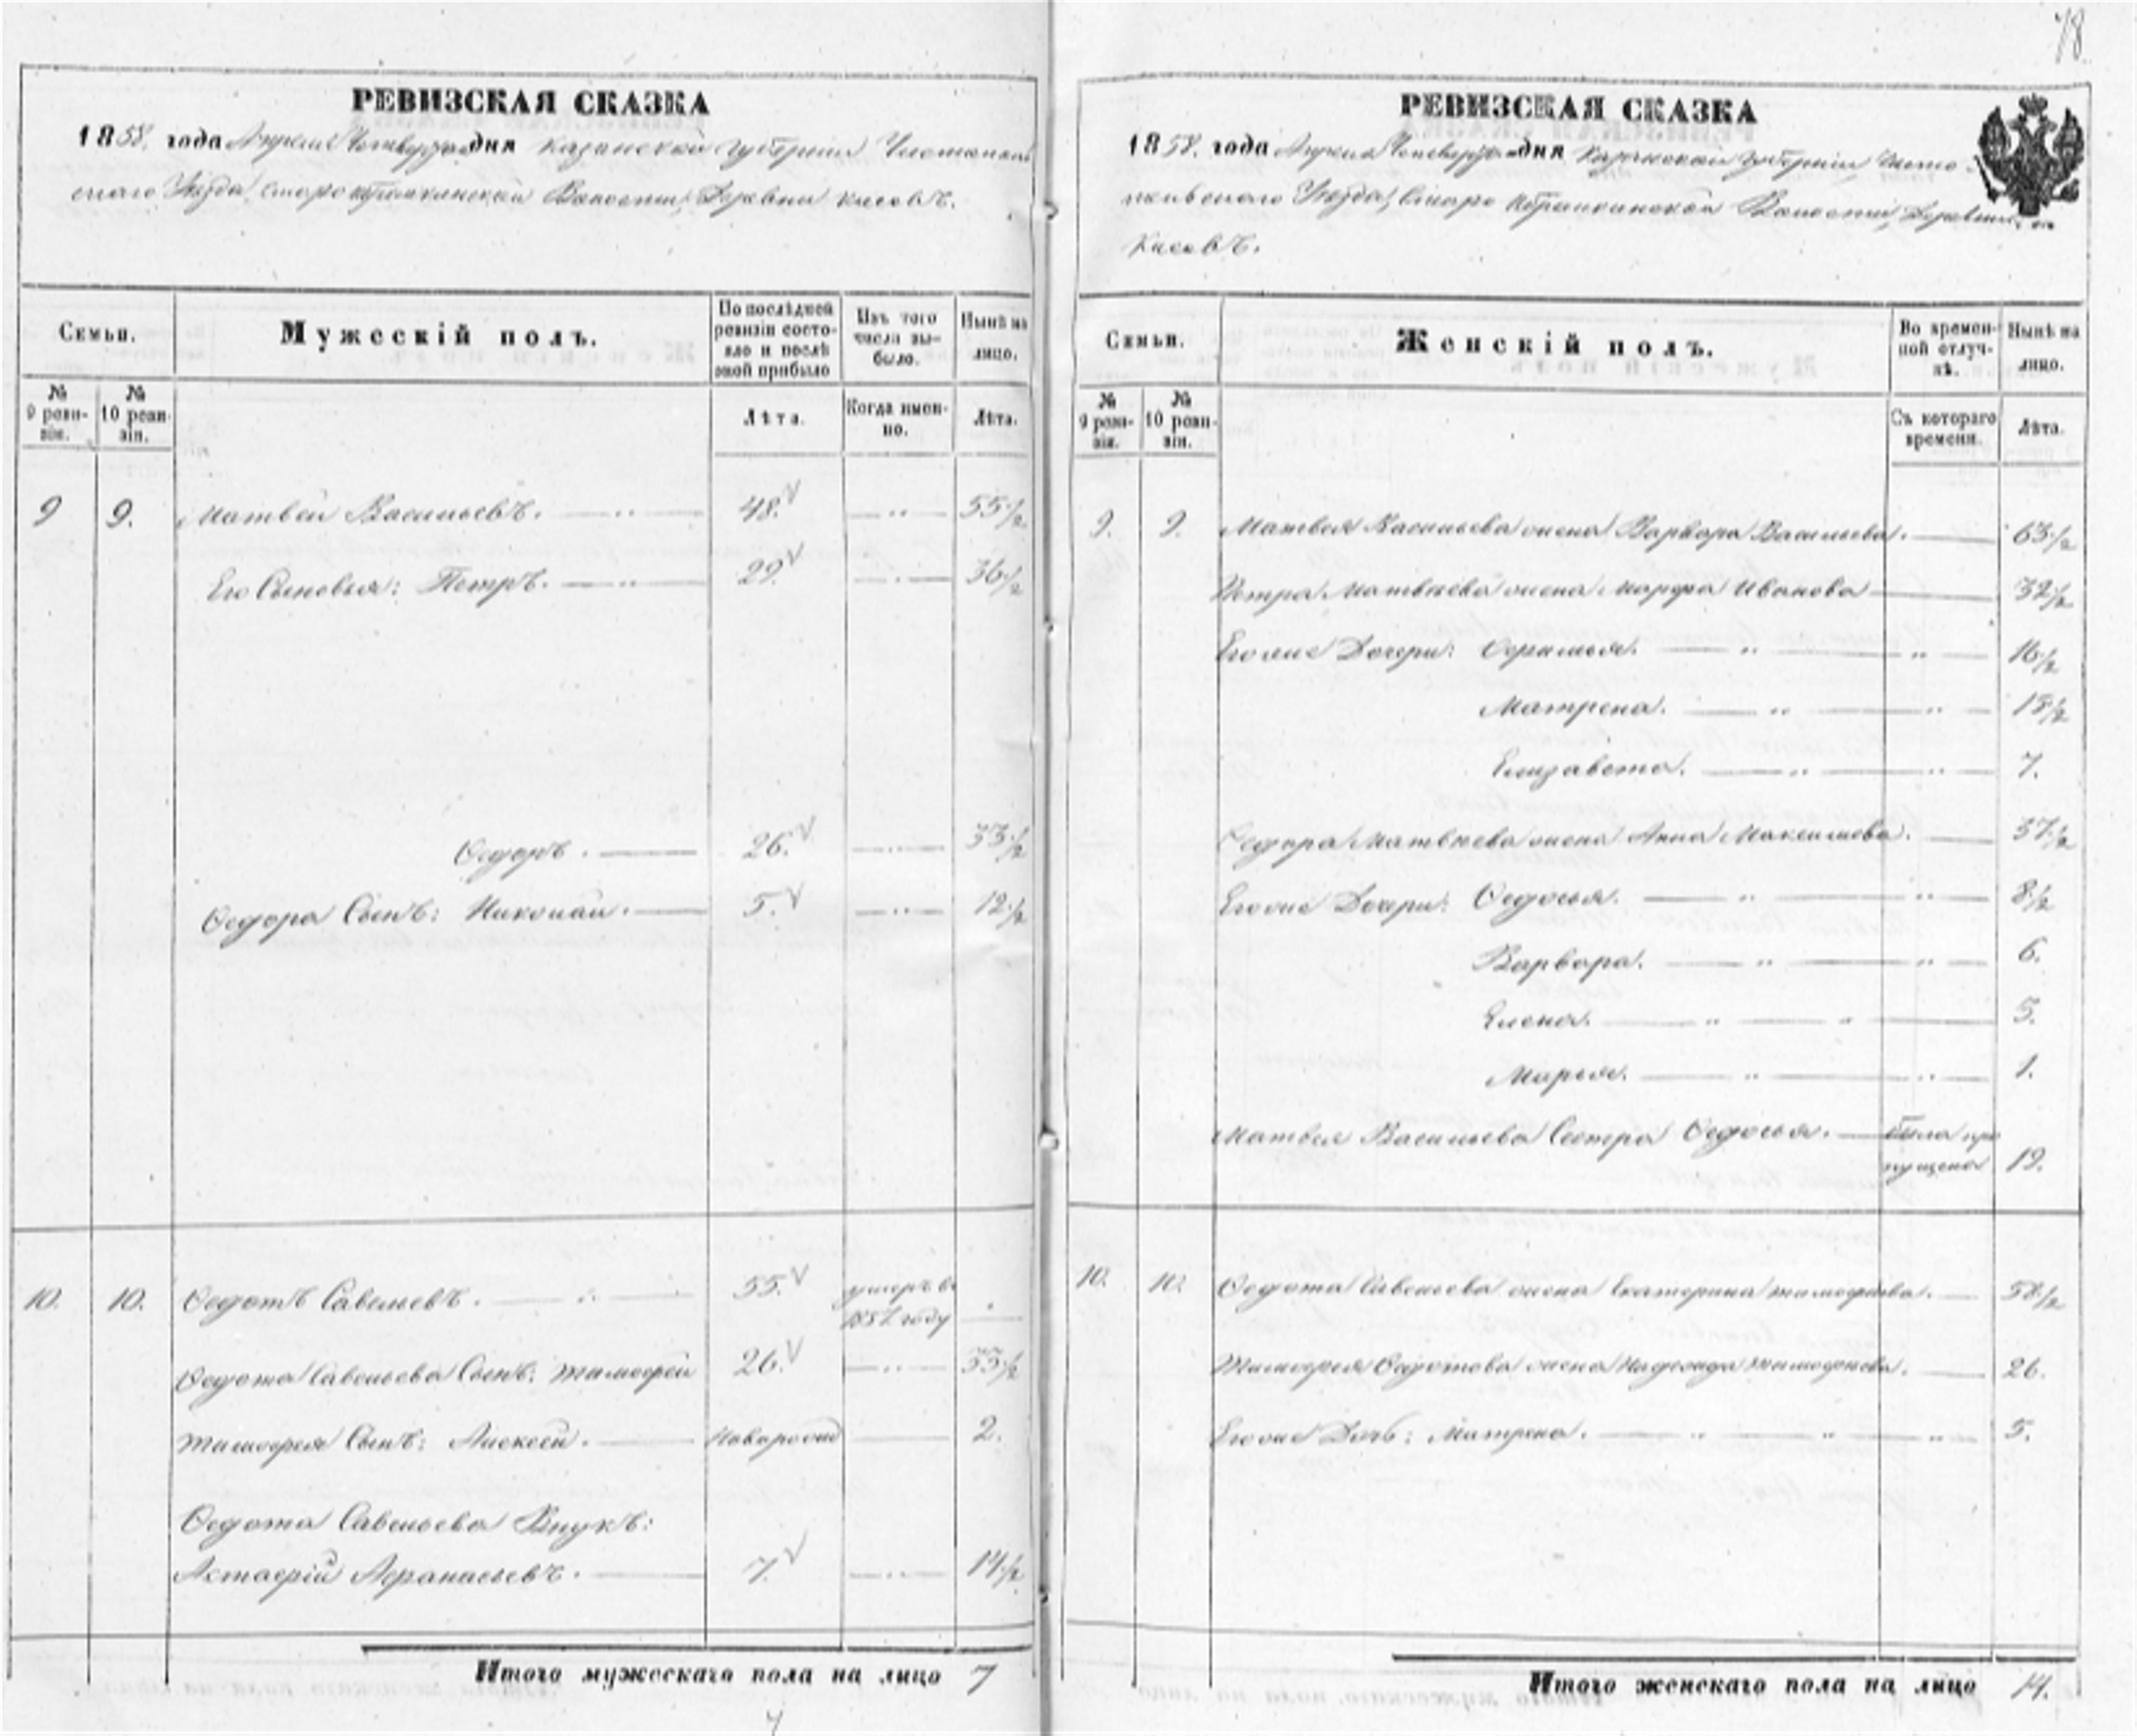 78.
РЕВИЗСКАЯ СКАЗКА
1858. года Апреля Четвертаго дня Казанской Губернии Чистополь
скаго Уезда, Старо Волости Деревни Кисевъ.
Семьи.
Мужескій полъ.
По послѣдней ревизіи состояло и послѣ оной прибыло
Изъ того числа выбыло.
Нынѣ на лицо.
№ 9 ревизіи.
№ 10 ревизіи.
Лѣта.
Когда именно.
Лѣта.
9 9. Матвей Васильевъ. 48. 55½
Его Сыновья: Петръ. 29. 36½
Ѳедоръ. 26. 33½
Ѳедора Сынъ: Николай. 5. 12½
10. 10. Ѳедотъ Савельевъ. 55. умеръ въ
1857 году
Ѳедота Савельева Сынъ: Тимофей 26. 33½
Тимофея Сынъ: Алексей. Новорожд 2.
Ѳедота Савельева Внукъ:
Астафій Афанасьевъ. 7. 14½
Итого мужескаго пола на лицо 7
РЕВИЗСКАЯ СКАЗКА
1858. года Апреля Четвертаго дня Казанской Губернии Чисто-
польскаго Уезда, Старо Волости, Деревни
Кисевъ.
Семьи.
Женскій полъ.
Во временной отлучкѣ.
Нынѣ на лицо.
№ 9 ревизіи.
№ 10 ревизіи.
Съ котораго времени.
Лѣта.
9. 9. Матвея Васильева жена Варвара Васильева. 63½
Петра Матвеева жена Марфа Иванова 32½
Его же Дочери: 16½
Матрена. 13½
Елизавета. 7.
Ѳедора Матвеева жена Анна Максимова. 37½
Его же Дочери: Ѳедосья. 8½
Варвара. 6.
Елена. 5.
Марья. 1.
Матвея Васильева Сестра Ѳедосья. была про
пущена 19.
10. 10. Ѳедота Савельева жена Екатерина Тимофеева. 58½
Тимофея Ѳедотова жена Надежда Тимофеева. 26.
Его же Дочь: Матрена. 5.
Итого женскаго пола на лицо 14.